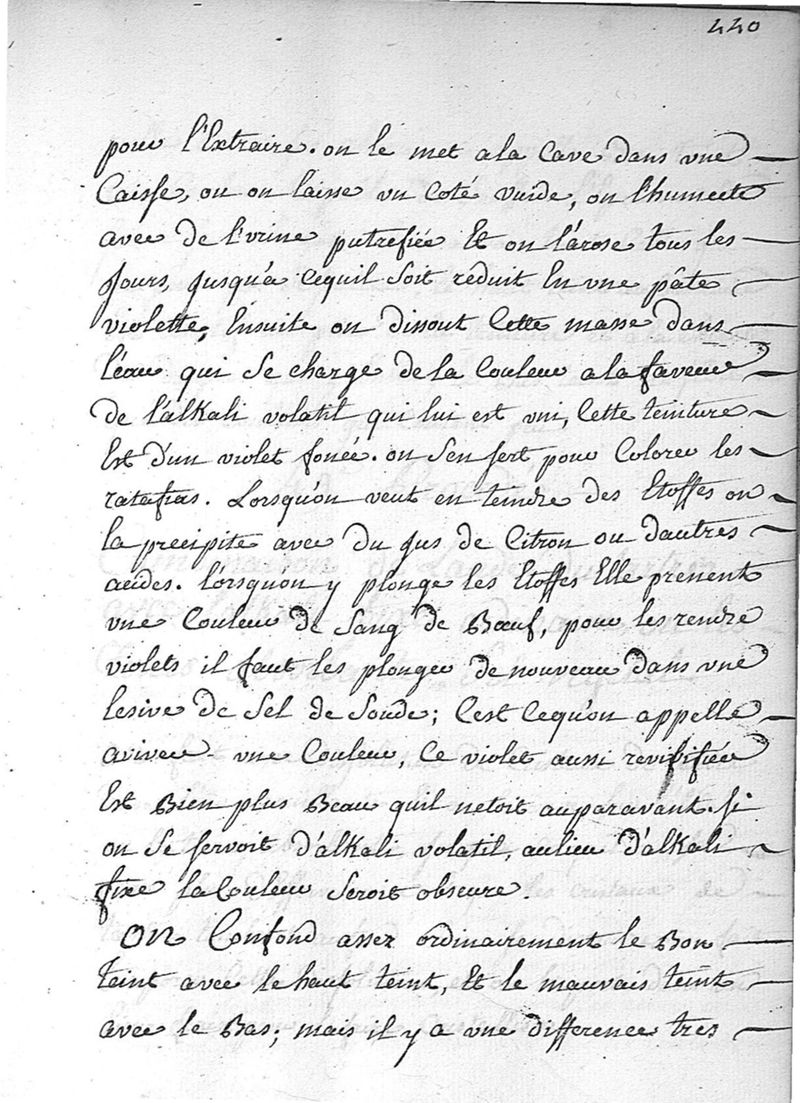 440
pour l'Extraire. on le met a la Cave dans vne
Caisse, ou on laisse vn Coté vuide, on l'humecte
avec de l'vrine putrefiée Et on l'arose tous les
Jours, Jusqu'a Cequil Soit réduit En vne pâte
violette, Ensuite on dissout Cette masse dans
l'eau qui Se charge de la Couleur a la faveur
de l'alkali volatil qui lui est vni, Cette teinture
Est D'un violet foncé. on S'en sert pour Colorer les
ratafias. Lorsqu'on veut en teindre des Etoffes on
la precipite avec du Jus de Citron ou dautres
acides. lorsquon y plonge les Etoffes Elle prenent
vne Couleur de Sang de Bœuf, pour les rendre
violets il faut les plonger de nouveau dans vne
lesive de Sel de Soude; C'est Cequ'on appelle
aviver vne Couleur, Ce violet aussi revifiée
Est Bien plus Beau quil netoit auparavant. Si
on Se servoit d'alkali volatil, aulieu d'alkali
fixe la Couleur Seroit obscure.
ON Confond assez ordinairement le Bon
teint avec le haut teint, Et le mauvais teint
avec le Bas; mais il y a vne difference tres